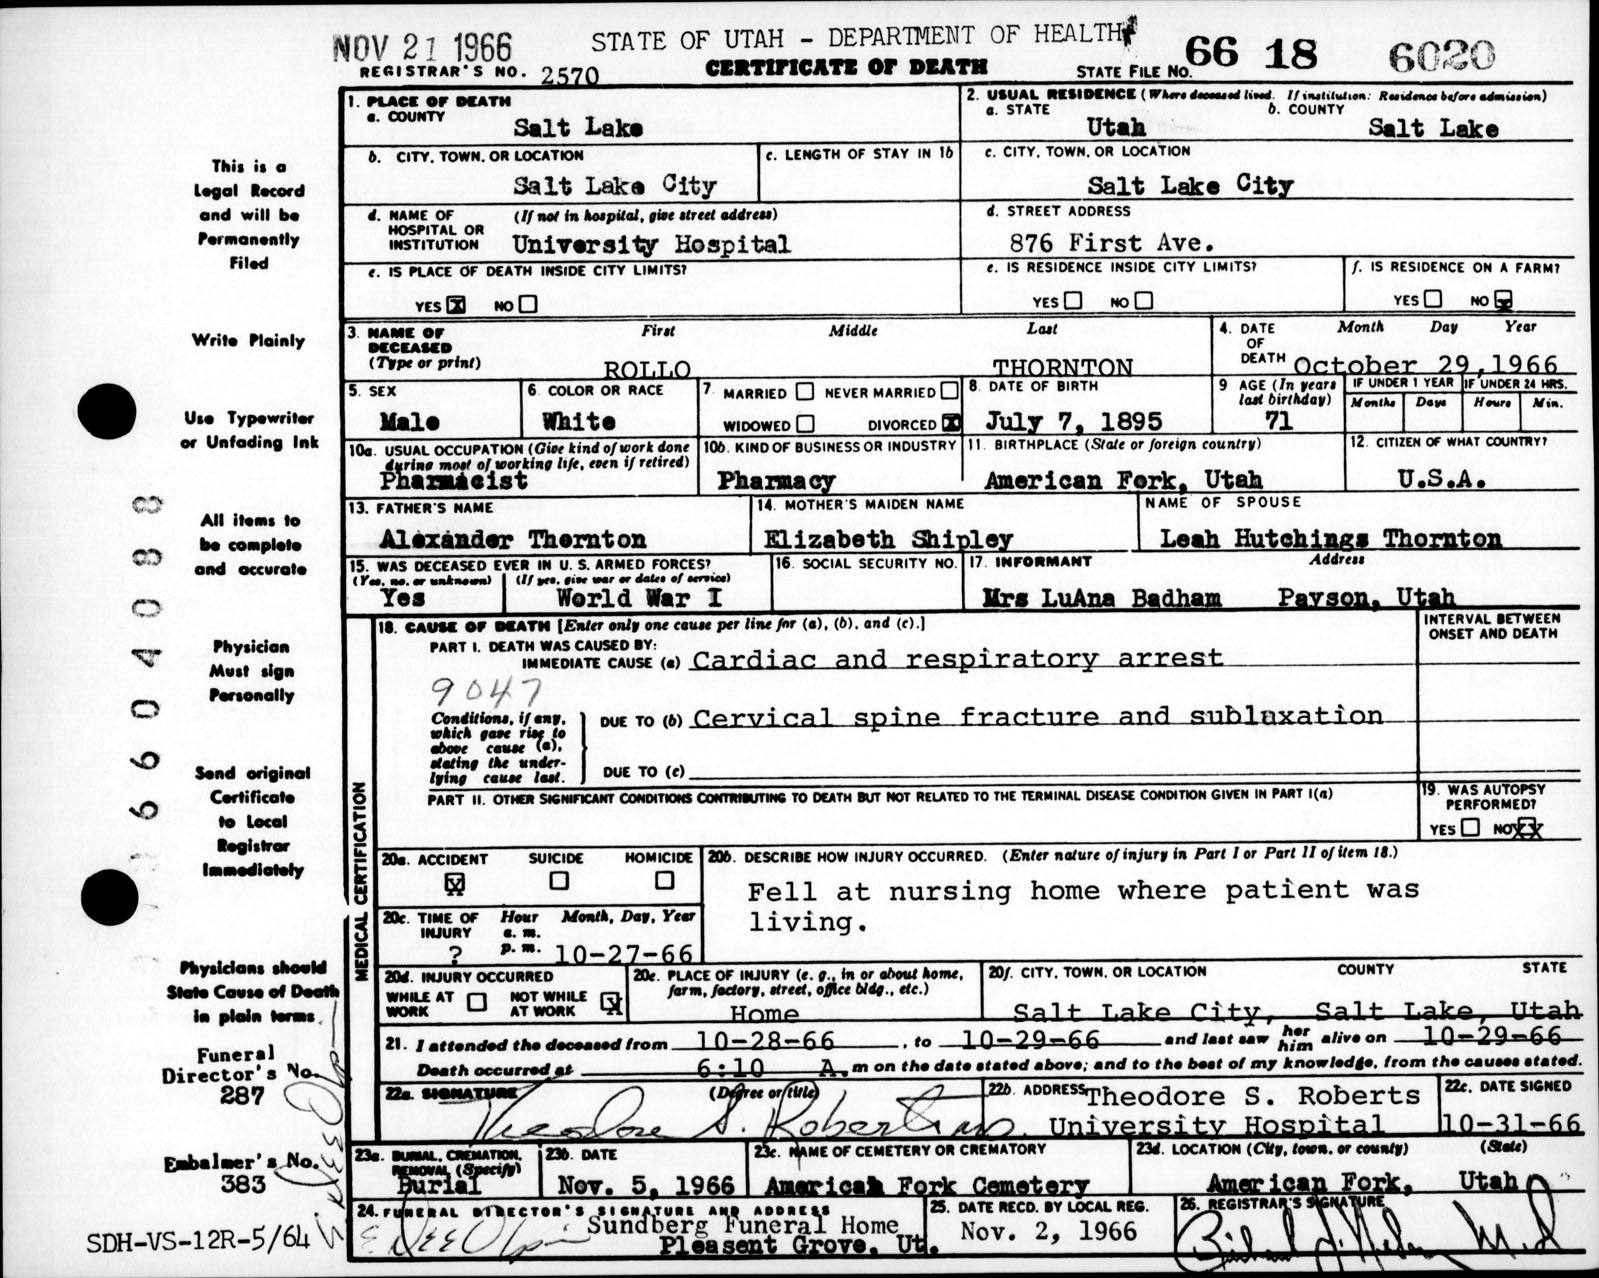 NOV 21 1966
STATE OF UTAH - DEPARTMENT OF HEALTH
66 18 6020
REGISTRAR'S NO. 2570
CERTIFICATE OF DEATH
STATE FILE NO.
1. PLACE OF DEATH
a. COUNTY
Salt Lake
2. USUAL RESIDENCE (Where deceased lived. If institution: Residence before admission)
a. STATE
Utah
b. COUNTY
Salt Lake
b. CITY, TOWN, OR LOCATION
Salt Lake City
c. LENGTH OF STAY IN 1b
c. CITY, TOWN, OR LOCATION
Salt Lake City
d. NAME OF HOSPITAL OR INSTITUTION
(If not in hospital, give street address)
University Hospital
d. STREET ADDRESS
876 First Ave.
e. IS PLACE OF DEATH INSIDE CITY LIMITS?
YES X NO
e. IS RESIDENCE INSIDE CITY LIMITS?
YES NO
f. IS RESIDENCE ON A FARM?
YES NO X
3. NAME OF DECEASED (Type or print)
First Middle Last
ROLLO THORNTON
4. DATE OF DEATH
Month Day Year
October 29, 1966
5. SEX
Male
6. COLOR OR RACE
White
7. MARRIED NEVER MARRIED
WIDOWED DIVORCED X
8. DATE OF BIRTH
July 7, 1895
9 AGE (In years last birthday)
71
IF UNDER 1 YEAR
Months Days
IF UNDER 24 HRS.
Hours Min.
10a. USUAL OCCUPATION (Give kind of work done during most of working life, even if retired)
Pharmacist
10b. KIND OF BUSINESS OR INDUSTRY
Pharmacy
11. BIRTHPLACE (State or foreign country)
American Fork, Utah
12. CITIZEN OF WHAT COUNTRY?
U.S.A.
13. FATHER'S NAME
Alexander Thornton
14. MOTHER'S MAIDEN NAME
Elizabeth Shipley
NAME OF SPOUSE
Leah Hutchings Thornton
15. WAS DECEASED EVER IN U. S. ARMED FORCES?
(Yes, no, or unknown) (If yes, give war or dates of service)
Yes World War I
16. SOCIAL SECURITY NO.
17. INFORMANT Address
Mrs LuAna Badham Payson, Utah
MEDICAL CERTIFICATION
18. CAUSE OF DEATH [Enter only one cause per line for (a), (b), and (c).]
INTERVAL BETWEEN ONSET AND DEATH
PART I. DEATH WAS CAUSED BY:
IMMEDIATE CAUSE (a) Cardiac and respiratory arrest
9047
Conditions, if any, which gave rise to above cause (a), stating the underlying cause last.
DUE TO (b) Cervical spine fracture and subluxation
DUE TO (c)
PART II. OTHER SIGNIFICANT CONDITIONS CONTRIBUTING TO DEATH BUT NOT RELATED TO THE TERMINAL DISEASE CONDITION GIVEN IN PART I(a)
19. WAS AUTOPSY PERFORMED?
YES NO XX
20a. ACCIDENT SUICIDE HOMICIDE
X
20b. DESCRIBE HOW INJURY OCCURRED. (Enter nature of injury in Part I or Part II of item 18.)
Fell at nursing home where patient was
living.
20c. TIME OF INJURY
Hour Month, Day, Year
a. m.
p. m.
? 10-27-66
20d. INJURY OCCURRED
WHILE AT WORK NOT WHILE AT WORK X
20e. PLACE OF INJURY (e. g., in or about home, farm, factory, street, office bldg., etc.)
Home
20f. CITY, TOWN, OR LOCATION COUNTY STATE
Salt Lake City, Salt Lake, Utah
21. I attended the deceased from 10-28-66, to 10-29-66 and last saw her him alive on 10-29-66
Death occurred at 6:10 A. m on the date stated above; and to the best of my knowledge, from the causes stated.
22a. SIGNATURE (Degree or title)
Theodore S. Roberts
22b. ADDRESS Theodore S. Roberts
University Hospital
22c. DATE SIGNED
10-31-66
23a. BURIAL, CREMATION, REMOVAL (Specify)
Burial
23b. DATE
Nov. 5, 1966
23c. NAME OF CEMETERY OR CREMATORY
American Fork Cemetery
23d. LOCATION (City, town, or county) (State)
American Fork, Utah
24. FUNERAL DIRECTOR'S SIGNATURE AND ADDRESS
Sundberg Funeral Home
Pleasent Grove, Ut.
25. DATE RECD. BY LOCAL REG.
Nov. 2, 1966
26. REGISTRAR'S SIGNATURE
M.D.
This is a
Legal Record
and will be
Permanently
Filed
Write Plainly
Use Typewriter
or Unfading Ink
All items to
be complete
and accurate
Physician
Must sign
Personally
Send original
Certificate
to Local
Registrar
Immediately
Physicians should
State Cause of Death
in plain terms.
Funeral
Director's No.
287
Embalmer's No.
383
SDH-VS-12R-5/64
6604088